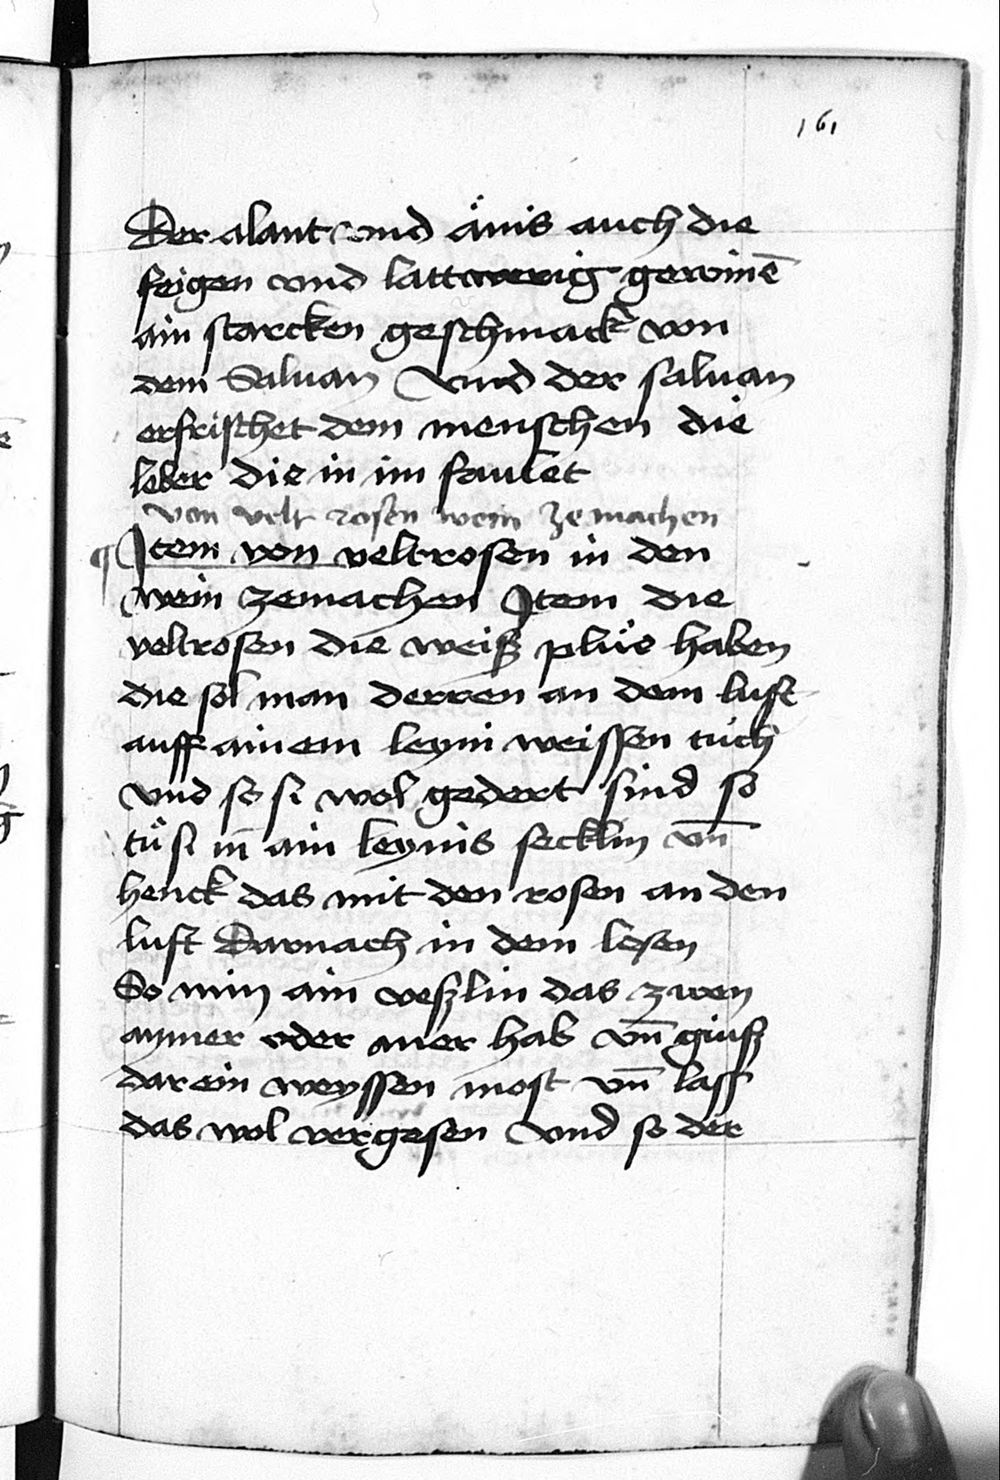 161
Der alant vnd änis auch die
feigen vnd lattwerig gewinē
ain starcken geschmack von
dem Saluan Vnd der saluan
erfrischet dem menschen die
leber die in im faulet
von velt rosen wein ze machen
¶ Item von veltrosen in den
wein zemachen Item die
veltrosen die weiß plüe haben
die sol man derren an dem luft
auff ainem leynin weissen tuch
vnd so si wol gedert sind so
tů si in ain leynis secklin vn̄
henck das mit den rosen an den
luft Darnach in dem lesen
So nim ain veßlin das zwen
aymer oder mer hab vn̄ giuß
darein weyssen most vn̄ lass
das wol vergesen Vnd so der